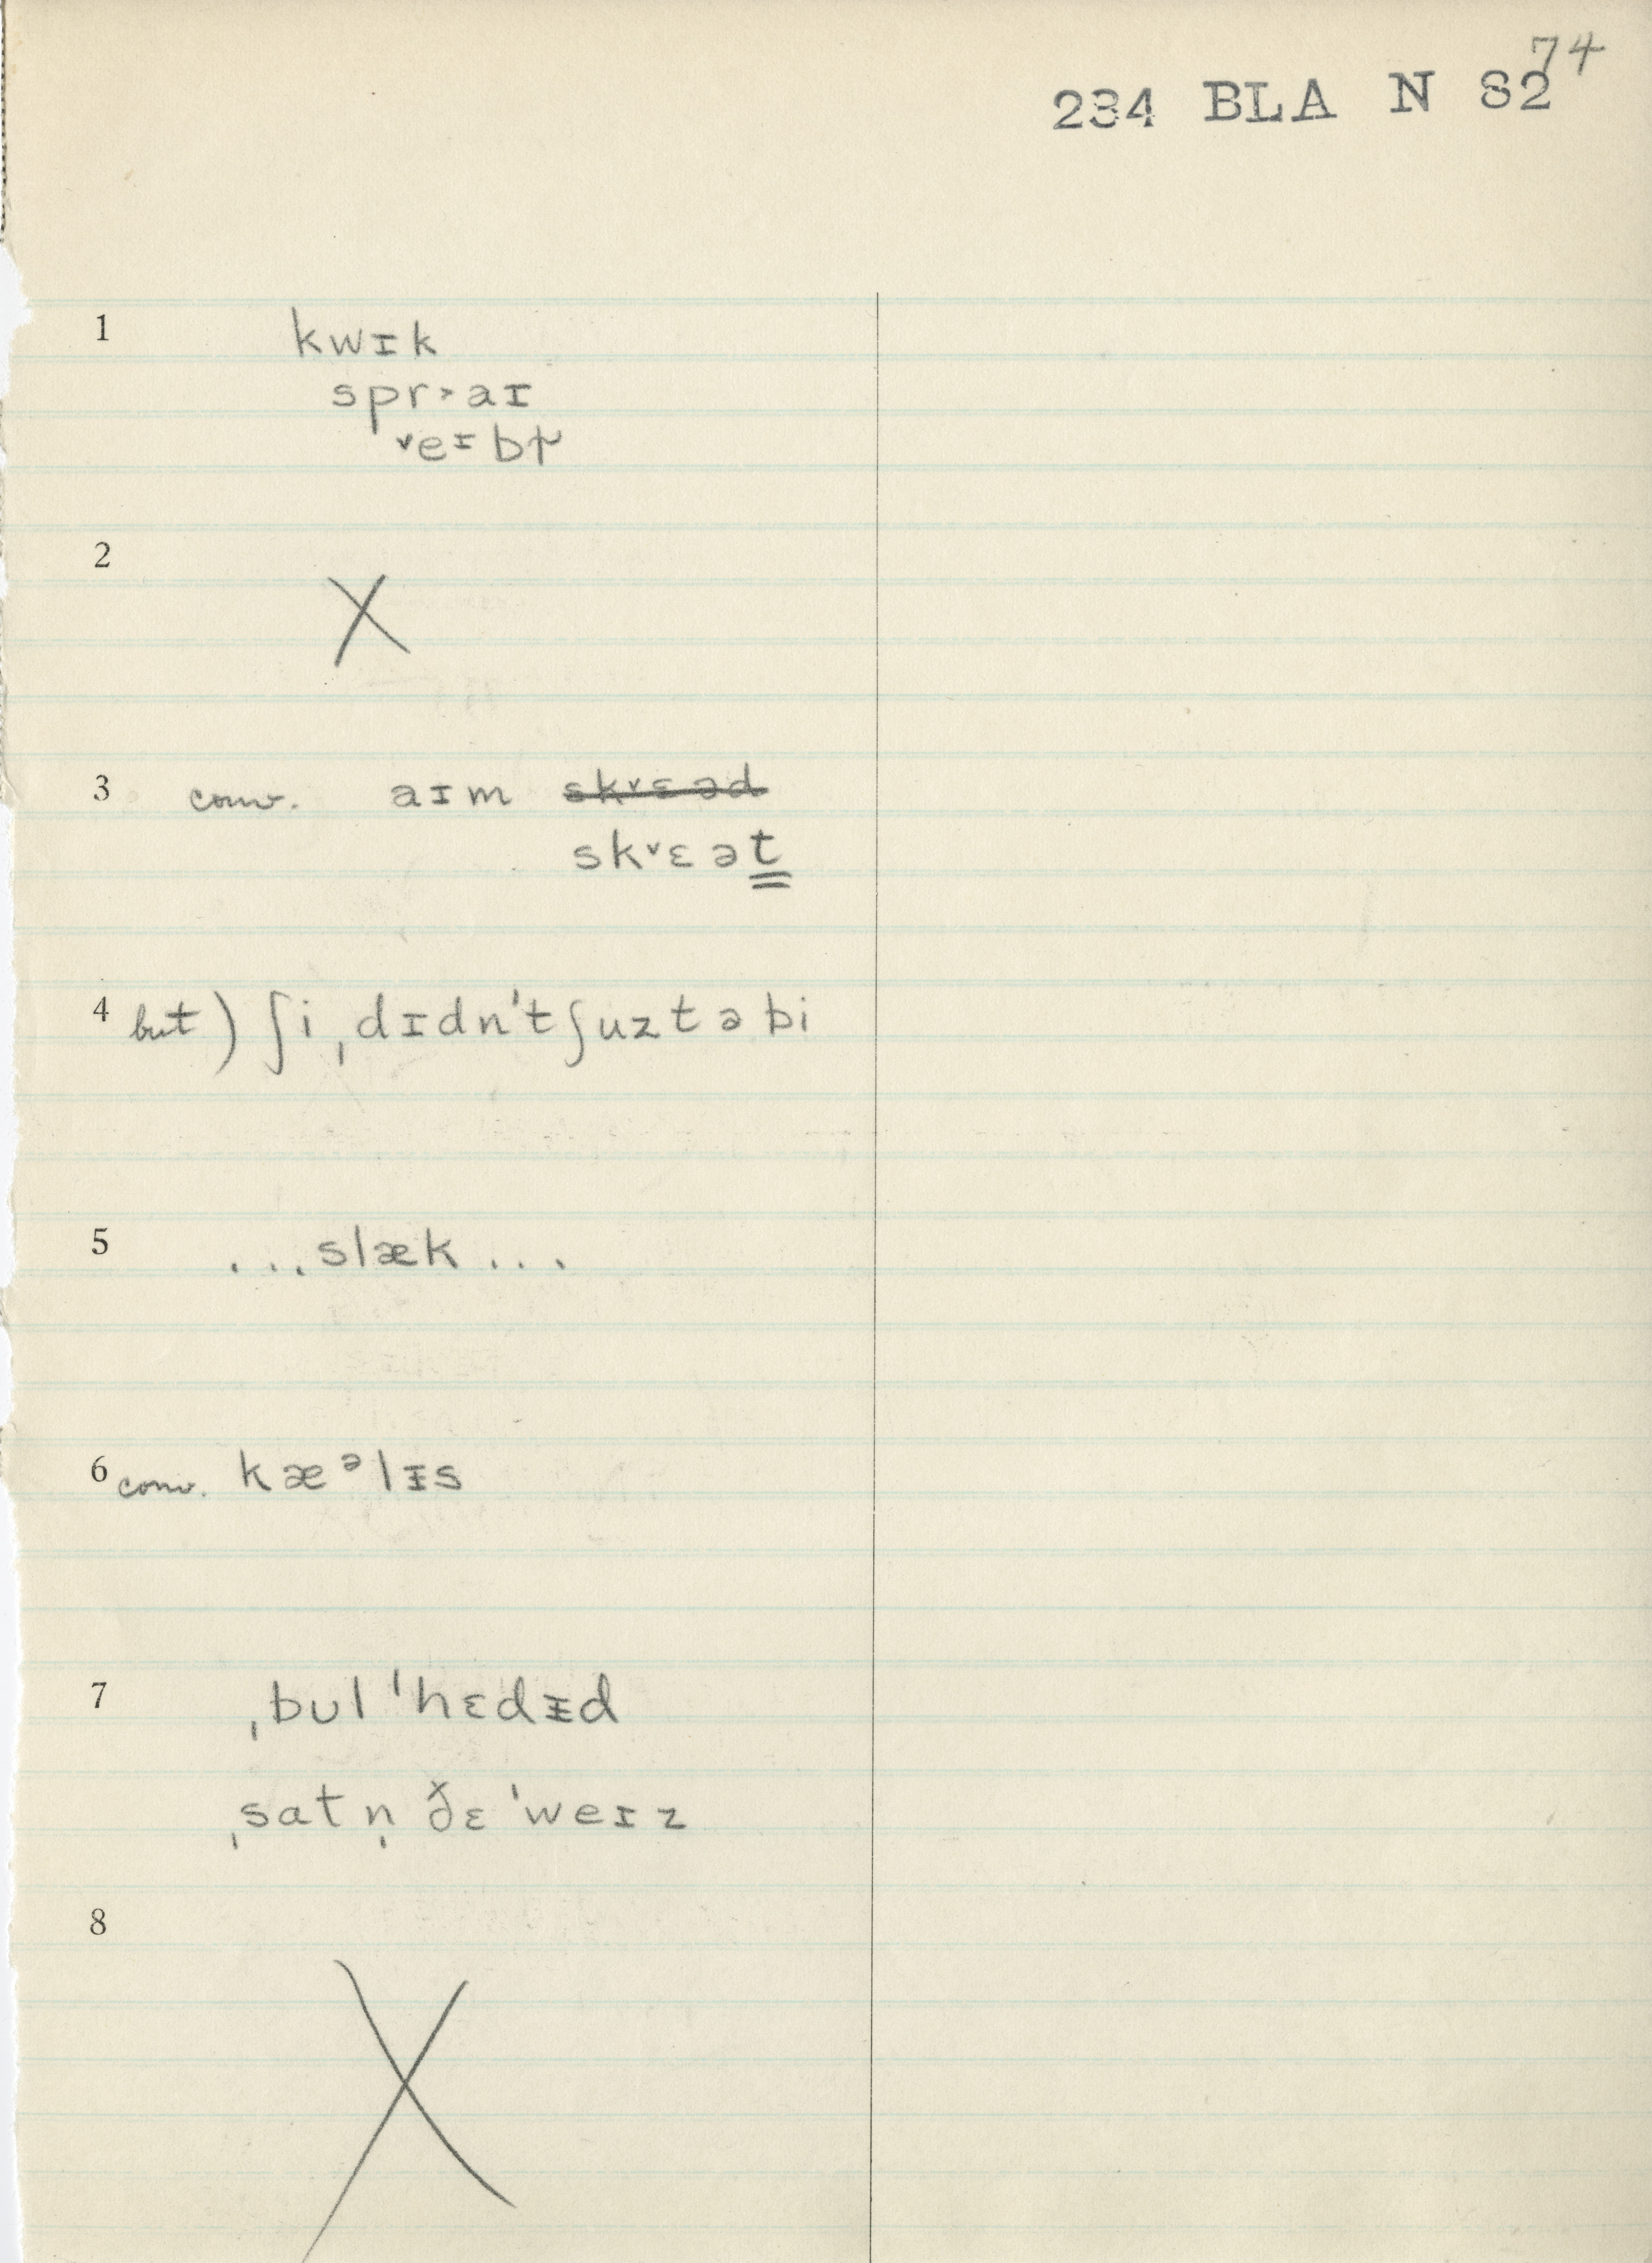 74
234 BLA N 82
1 kwɪk
spr˃aɪ
˅eɪbɫ
2 X
3 conv. aɪm sk˅ɛəd
sk˅ɛət
4 but) ʃi ˌdɪdn't ʃuztəbi
5 ...slæk...
6 conv. kæᵊlɪ̵s
7 ˌbʊl ˈhɛdɪ̵d
ˌsatn̩ ðɛ ˈweɪz
8 X